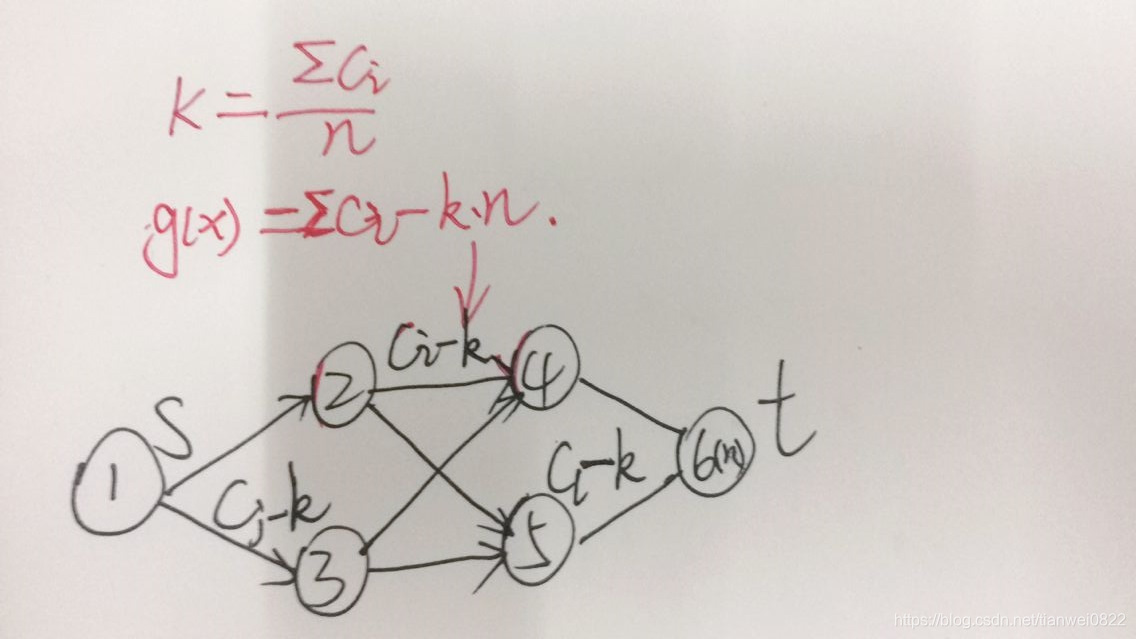 k = ΣCi / n
g(x) = ΣCi - k·n.
Ci-k
2
4
S
t
1
Ci-k
6(n)
Cj-k
5
3
https://blog.csdn.net/tianwei0822